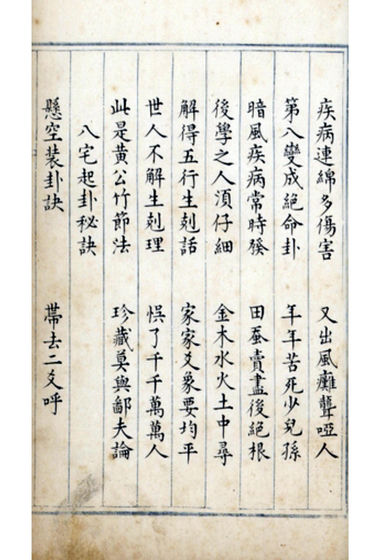 疾病連綿多傷害　又出風癱聾啞人
第八變成絕命卦　年年苦死少兒孫
暗風疾病常時發　田蚕賣盡後絕根
後學之人須仔細　金木水火土中尋
解得五行生剋話　家家爻象要均平
世人不解生剋理　悞了千千萬萬人
此是黃公竹節法　珍藏莫與鄙夫論
八宅起卦秘訣
懸空裝卦訣　帶去二爻呼